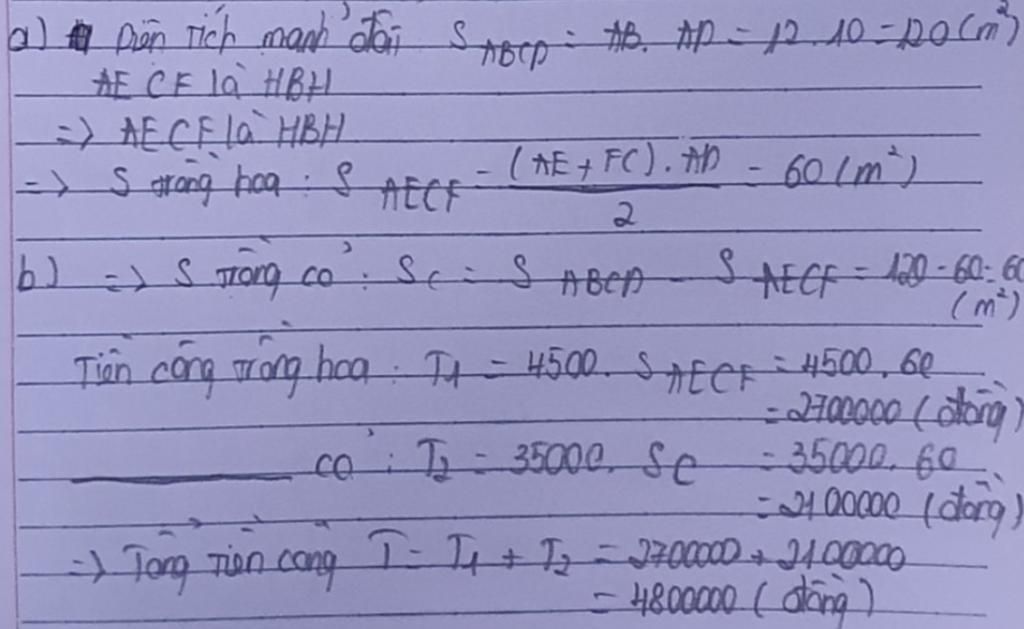 a) Diện tích mảnh đất S ABCD = AB. AD = 12. 10 = 120 (m²)
AECF là HBH
=> AECF là HBH
=> S trồng hoa : S AECF = (AE + FC). AD / 2 = 60 (m²)
b) => S trồng cỏ : Sc = S ABCD - S AECF = 120 - 60 = 60 (m²)
Tiền công trồng hoa : T1 = 4500. S AECF = 4500. 60
= 2700000 (đồng)
cỏ : T2 = 35000. SC = 35000. 60
= 2100000 (đồng)
=> Tổng tiền công T = T1 + T2 = 2700000 + 2100000
= 4800000 (đồng)